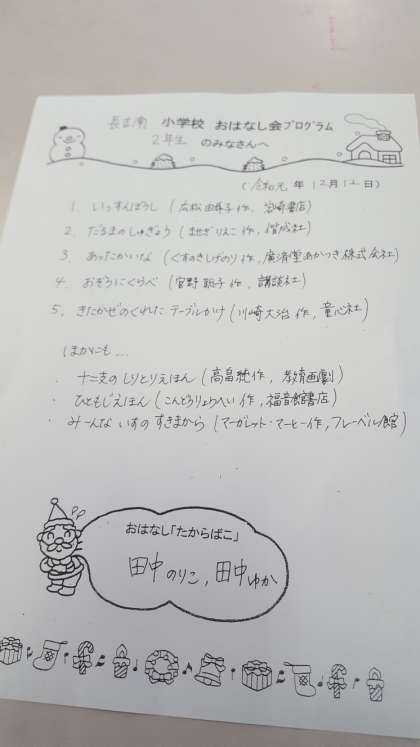 長吉南 小学校 おはなし会プログラム
2年生 のみなさんへ
(令和元年 12月12日)
1. いっすんぼうし (広松由希子作, 岩崎書店)
2. だるまのしゅぎょう (ませぎりえこ作, 偕成社)
3. あったかいな (くすのきしげのり作, 廣済堂あかつき株式会社)
4. おぞうにくらべ (宮野聡子作, 講談社)
5. きたかぜのくれたテーブルかけ (川崎大治作, 童心社)
ほかにも...
・ 十二支のしりとりえほん (高畠純作, 教育画劇)
・ ひともじえほん (こんどうりょうへい作, 福音館書店)
・ みーんないすのすきまから (マーガレット・マーヒー作, フレーベル館)
おはなし「たからばこ」
田中のりこ, 田中ゆか